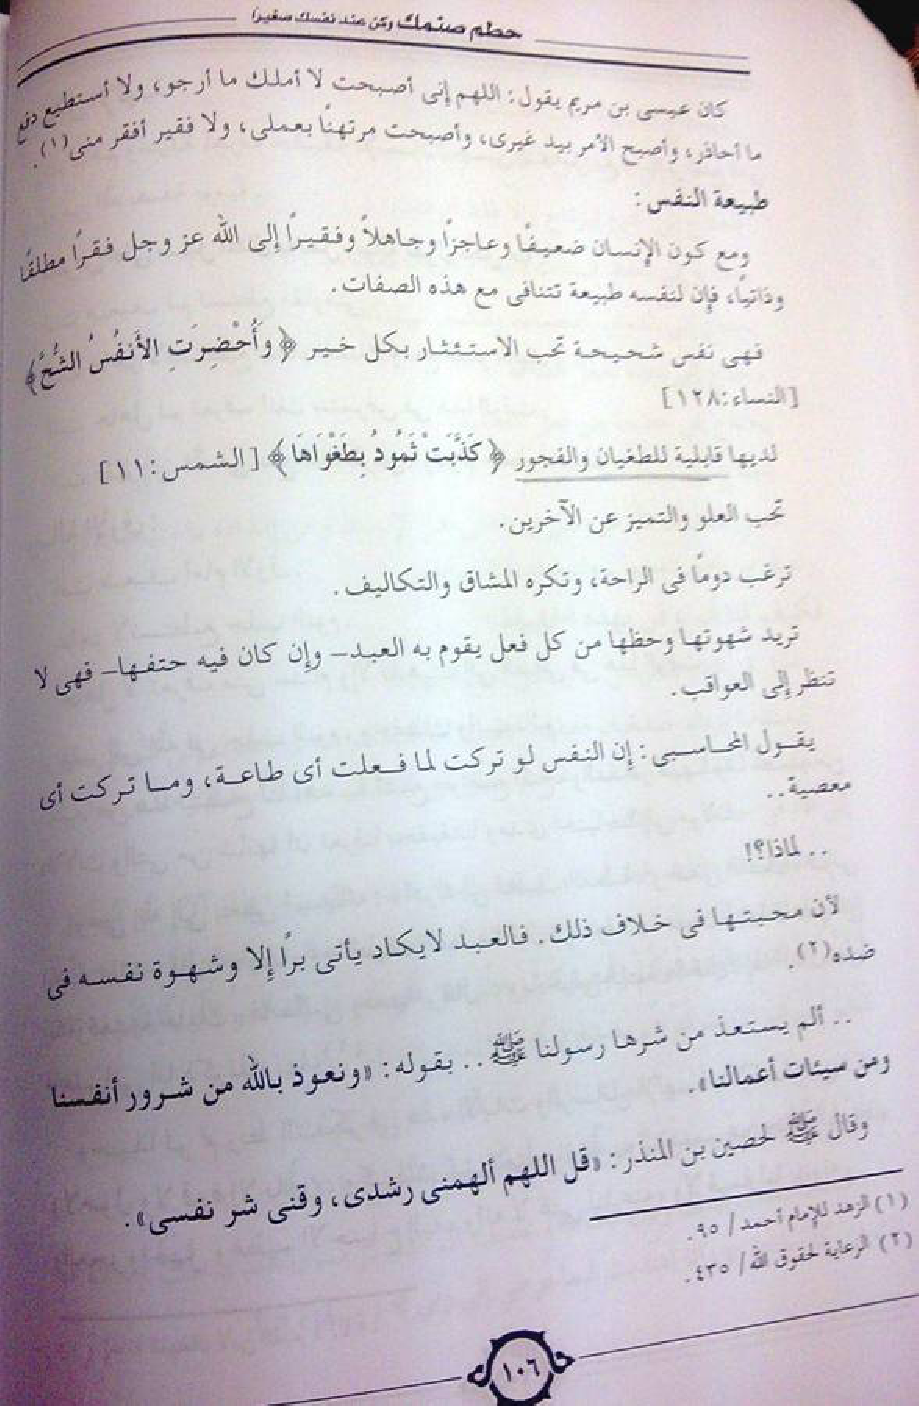 حطم صنمك وكن عند نفسك صغيرا
كان عيسى بن مريم يقول: اللهم إنى أصبحت لا أملك ما أرجو، ولا أستطيع دفع
ما أحاذر، وأصبح الأمر بيد غيرى، وأصبحت مرتهنًا بعملى، ولا فقير أفقر منى(١).
طبيعة النفس:
ومع كون الإنسان ضعيفًا وعاجزًا وجاهلاً وفقيرًا إلى الله عز وجل فقرًا مطلقًا
وذاتيًا، فإن لنفسه طبيعة تتنافى مع هذه الصفات.
فهى نفس شحيحة تحب الاستئثار بكل خير ﴿وَأُحْضِرَتِ الأَنفُسُ الشُّحَّ﴾
[النساء:١٢٨]
لديها قابلية للطغيان والفجور ﴿كَذَّبَتْ ثَمُودُ بِطَغْوَاهَا﴾ [الشمس:١١]
تحب العلو والتميز عن الآخرين.
ترغب دومًا فى الراحة، وتكره المشاق والتكاليف.
تريد شهوتها وحظها من كل فعل يقوم به العبد– وإن كان فيه حتفها– فهى لا
تنظر إلى العواقب.
يقول المحاسبى: إن النفس لو تركت لما فعلت أى طاعة، وما تركت أى
معصية..
.. لماذا؟!
لأن محبتها فى خلاف ذلك. فالعبد لايكاد يأتى برًا إلا وشهوة نفسه فى
ضده(٢).
.. ألم يستعذ من شرها رسولنا ﷺ .. بقوله: «ونعوذ بالله من شرور أنفسنا
ومن سيئات أعمالنا».
وقال ﷺ لحصين بن المنذر: «قل اللهم ألهمنى رشدى، وقنى شر نفسى».
(١) الزهد للإمام أحمد / ٩٥.
(٢) الرعاية لحقوق الله/ ٤٣٥.
١٠٦